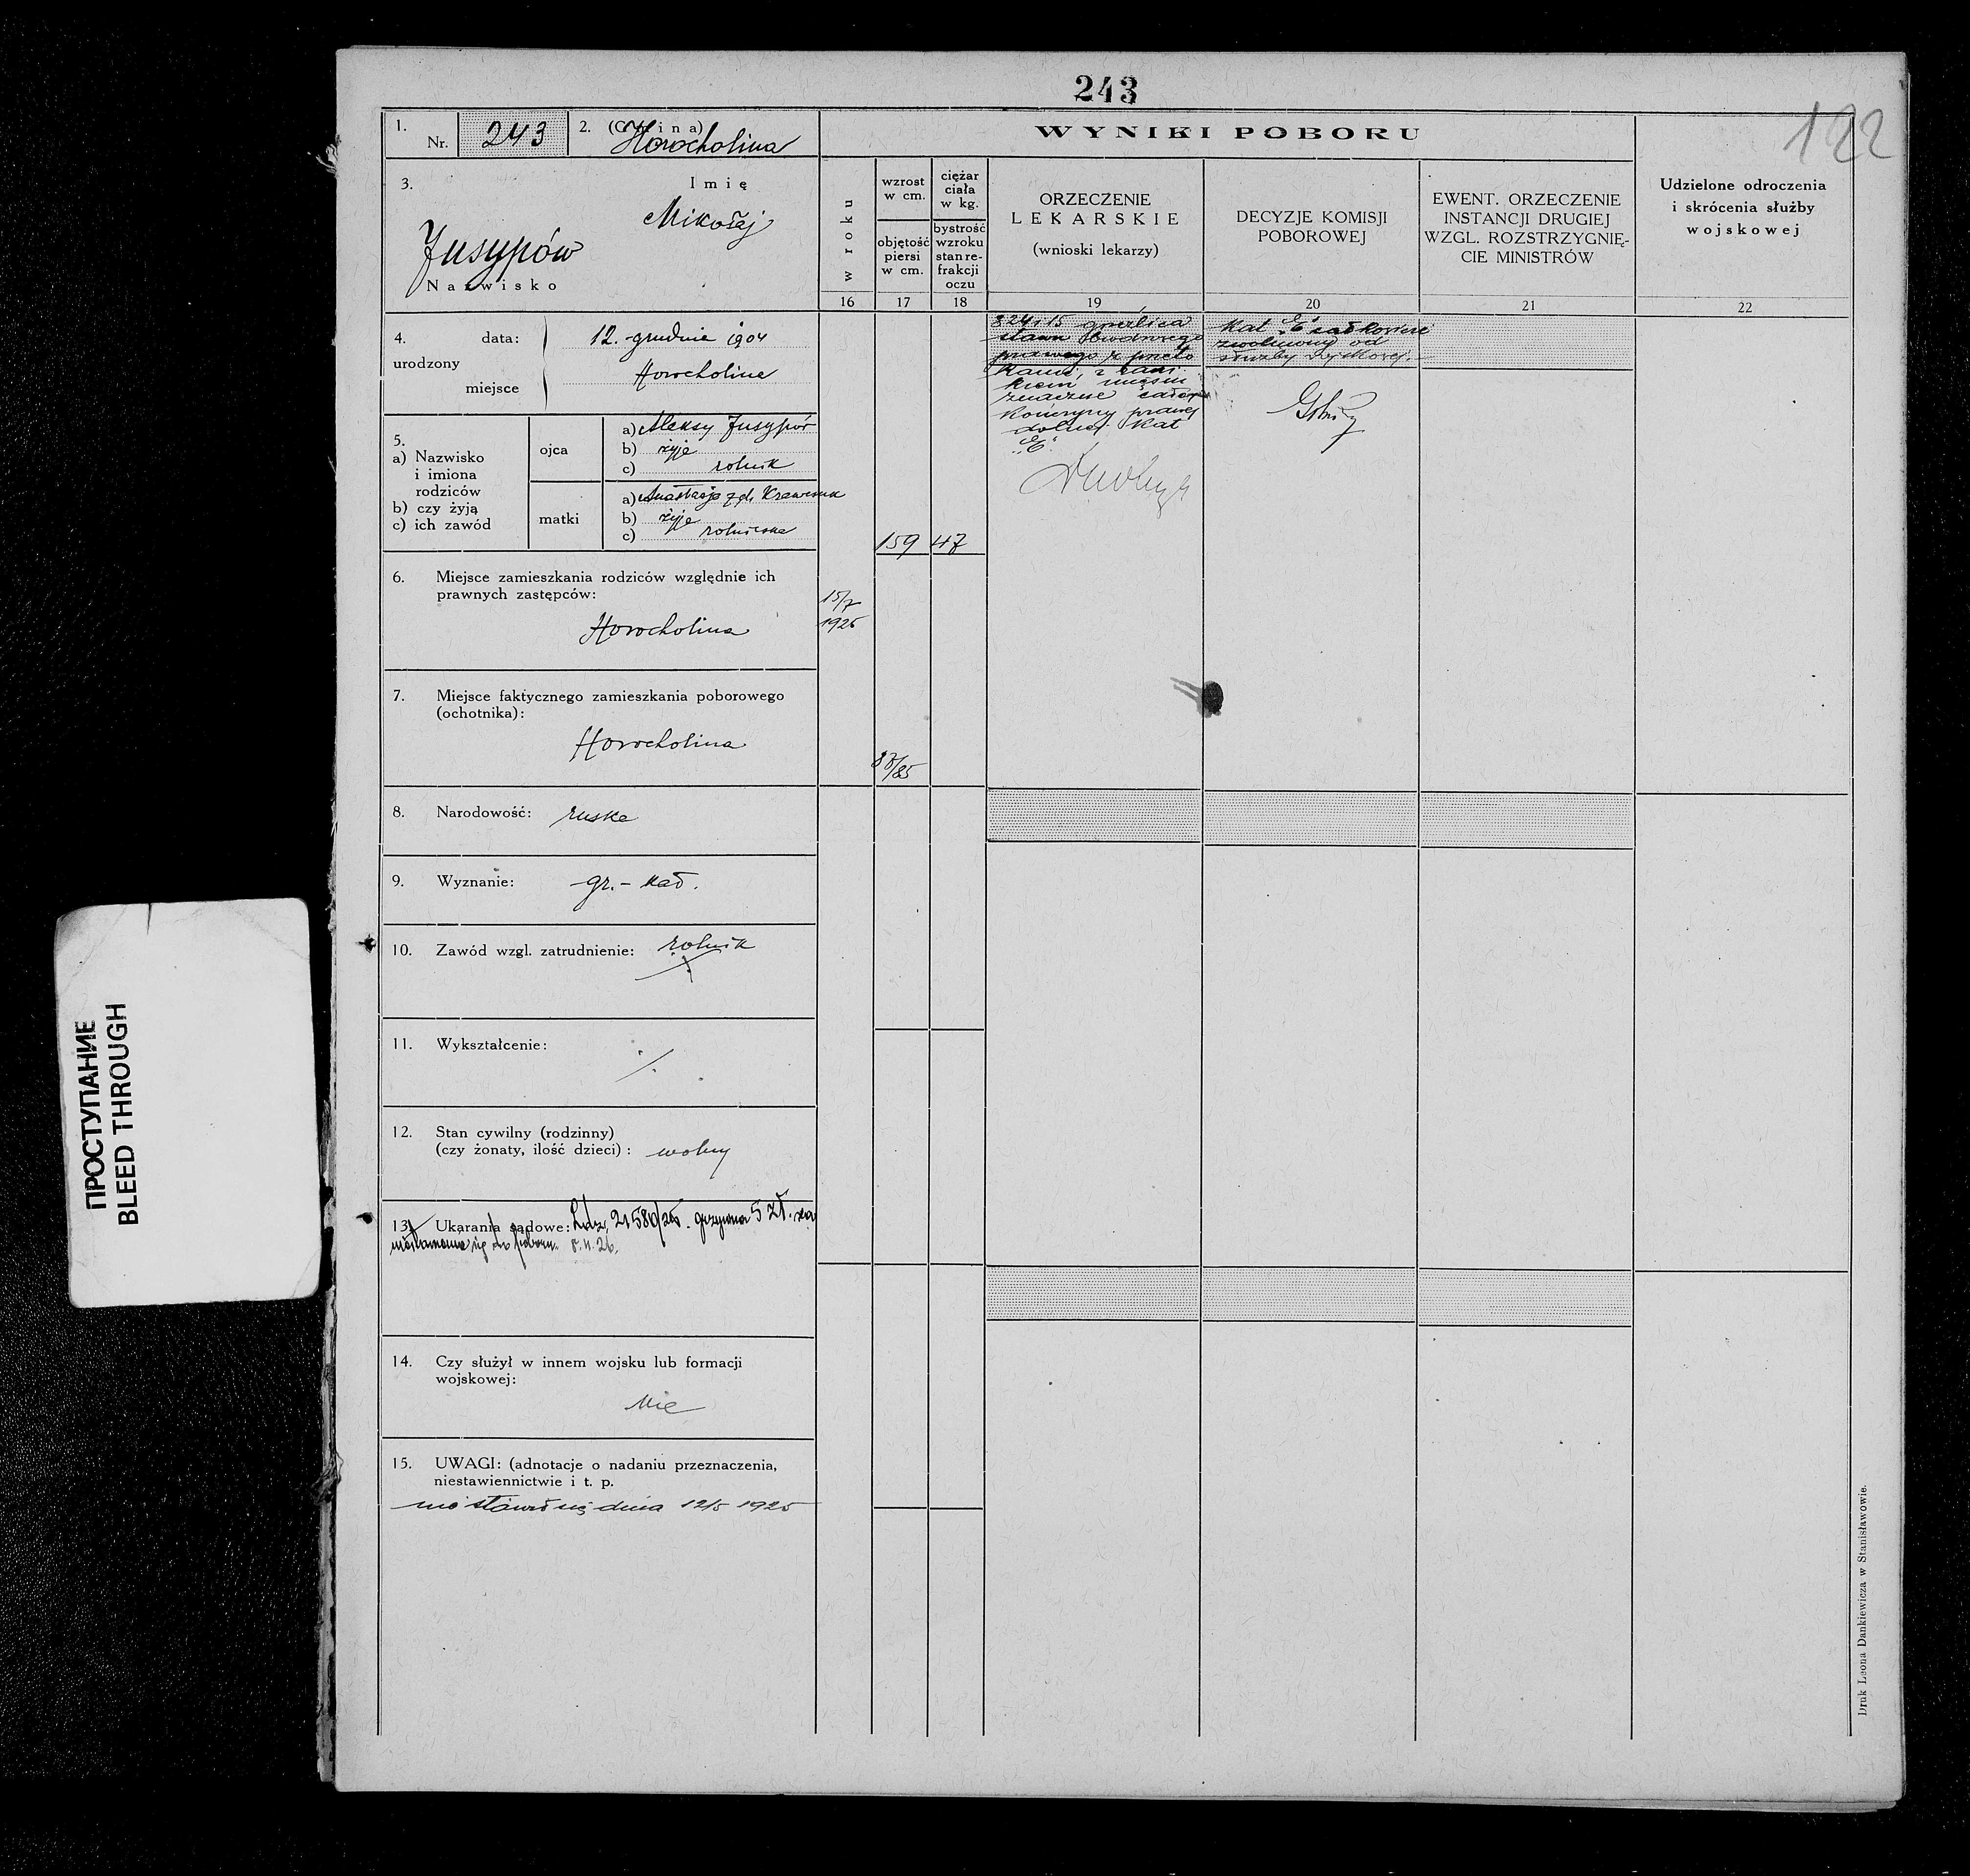 243
122
1. Nr. 243
2. (Gmina) Horocholina
WYNIKI POBORU
3. Imię
Mikołaj
Jusypów
Nazwisko
w roku
wzrost
w cm.
objętość
piersi
w cm.
ciężar
ciała
w kg.
bystrość
wzroku
stan re-
frakcji
oczu
ORZECZENIE
LEKARSKIE
(wnioski lekarzy)
DECYZJE KOMISJI
POBOROWEJ
EWENT. ORZECZENIE
INSTANCJI DRUGIEJ
WZGL. ROZSTRZYGNIĘ-
CIE MINISTRÓW
Udzielone odroczenia
i skrócenia służby
wojskowej
16 17 18 19 20 21 22
4.
urodzony
data: 12. grudnia 1904
miejsce Horocholina
5.
a) Nazwisko
i imiona
rodziców
b) czy żyją
c) ich zawód
ojca
a) Aleksy Jusypów
b) żyje
c) rolnik
matki
a) Anastazja z d. Krawczuk
b) żyje
c) rolniczka
6. Miejsce zamieszkania rodziców względnie ich
prawnych zastępców:
Horocholina
7. Miejsce faktycznego zamieszkania poborowego
(ochotnika):
Horocholina
8. Narodowość: ruska
9. Wyznanie: gr. - kat.
10. Zawód wzgl. zatrudnienie: rolnik
11. Wykształcenie: ·/.
12. Stan cywilny (rodzinny)
(czy żonaty, ilość dzieci): wolny
13. Ukarania sądowe: L.dz. 21580/25. grzywna 5 zł. za
niestawienie się do poboru.
14. Czy służył w innem wojsku lub formacji
wojskowej:
Nie
15. UWAGI: (adnotacje o nadaniu przeznaczenia,
niestawiennictwie i t. p.
nie stawił się dnia 12/5 1925
15/7
1925
159 47
87/85
gruźlica
stawu biodrowego
prawego z przeto
kami, z zani
kiem mięśni
znacznie całej
kończyny prawej
dolnej. Kat
„E"
Kat „E" całkowicie
zwolniony od
służby wojskowej.
Druk Leona Dankiewicza w Stanisławowie.
ПРОСТУПАНИЕ
BLEED THROUGH